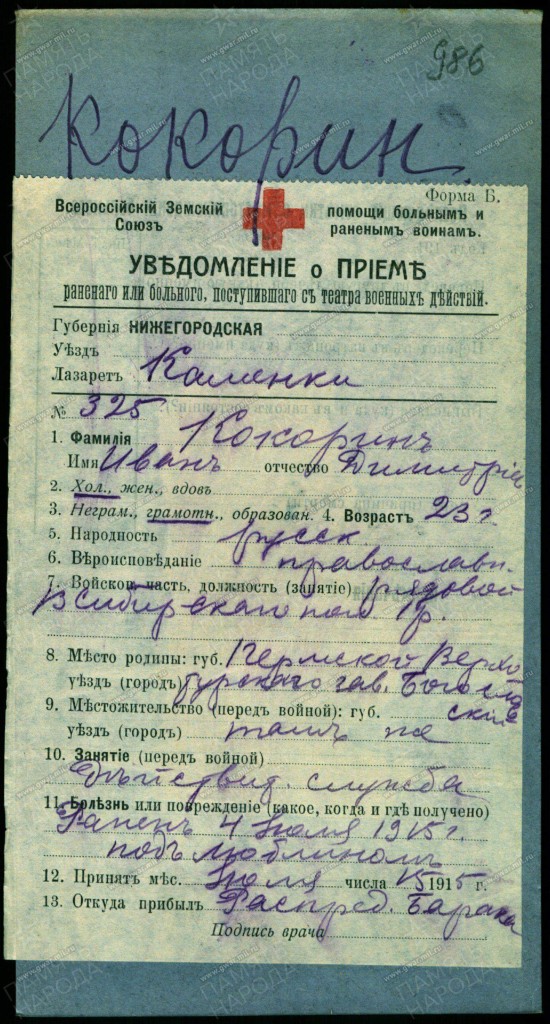 986
Кокорин.
Форма Б.
Всероссійскій Земскій Союзъ помощи больнымъ и раненымъ воинамъ.
УВѢДОМЛЕНІЕ о ПРІЕМѢ
раненаго или больного, поступившаго съ театра военныхъ дѣйствій.
Губернія НИЖЕГОРОДСКАЯ
Уѣздъ
Лазаретъ Каменки
№ 325
1. Фамилія Кокоринъ
Имя Иванъ отчество Димитріев
2. Хол., жен., вдовъ
3. Неграм., грамотн., образован. 4. Возрастъ 23 г.
5. Народность русск.
6. Вѣроисповѣданіе православн.
7. Войсков. часть, должность (занятіе) рядовой
Сибирскаго пол р.
8. Мѣсто родины: губ. Пермской Верхо
уѣздъ (городъ) турскаго зав. Богослов
9. Мѣстожительство (передъ войной): губ. скій
уѣздъ (городъ) тамъ же
10. Занятіе (передъ войной)
дѣйствит. служба
11. Болѣзнь или поврежденіе (какое, когда и гдѣ получено)
Раненъ 4 Іюля 1915 г.
подъ Люблиномъ
12. Принятъ мѣс. Іюля числа 15 1915 г.
13. Откуда прибылъ Распред. Барака
Подпись врача
www.gwar.mil.ru
ПАМЯТЬ НАРОДА